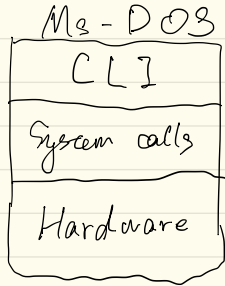 Ms-DOS
CLI
System calls
Hardware